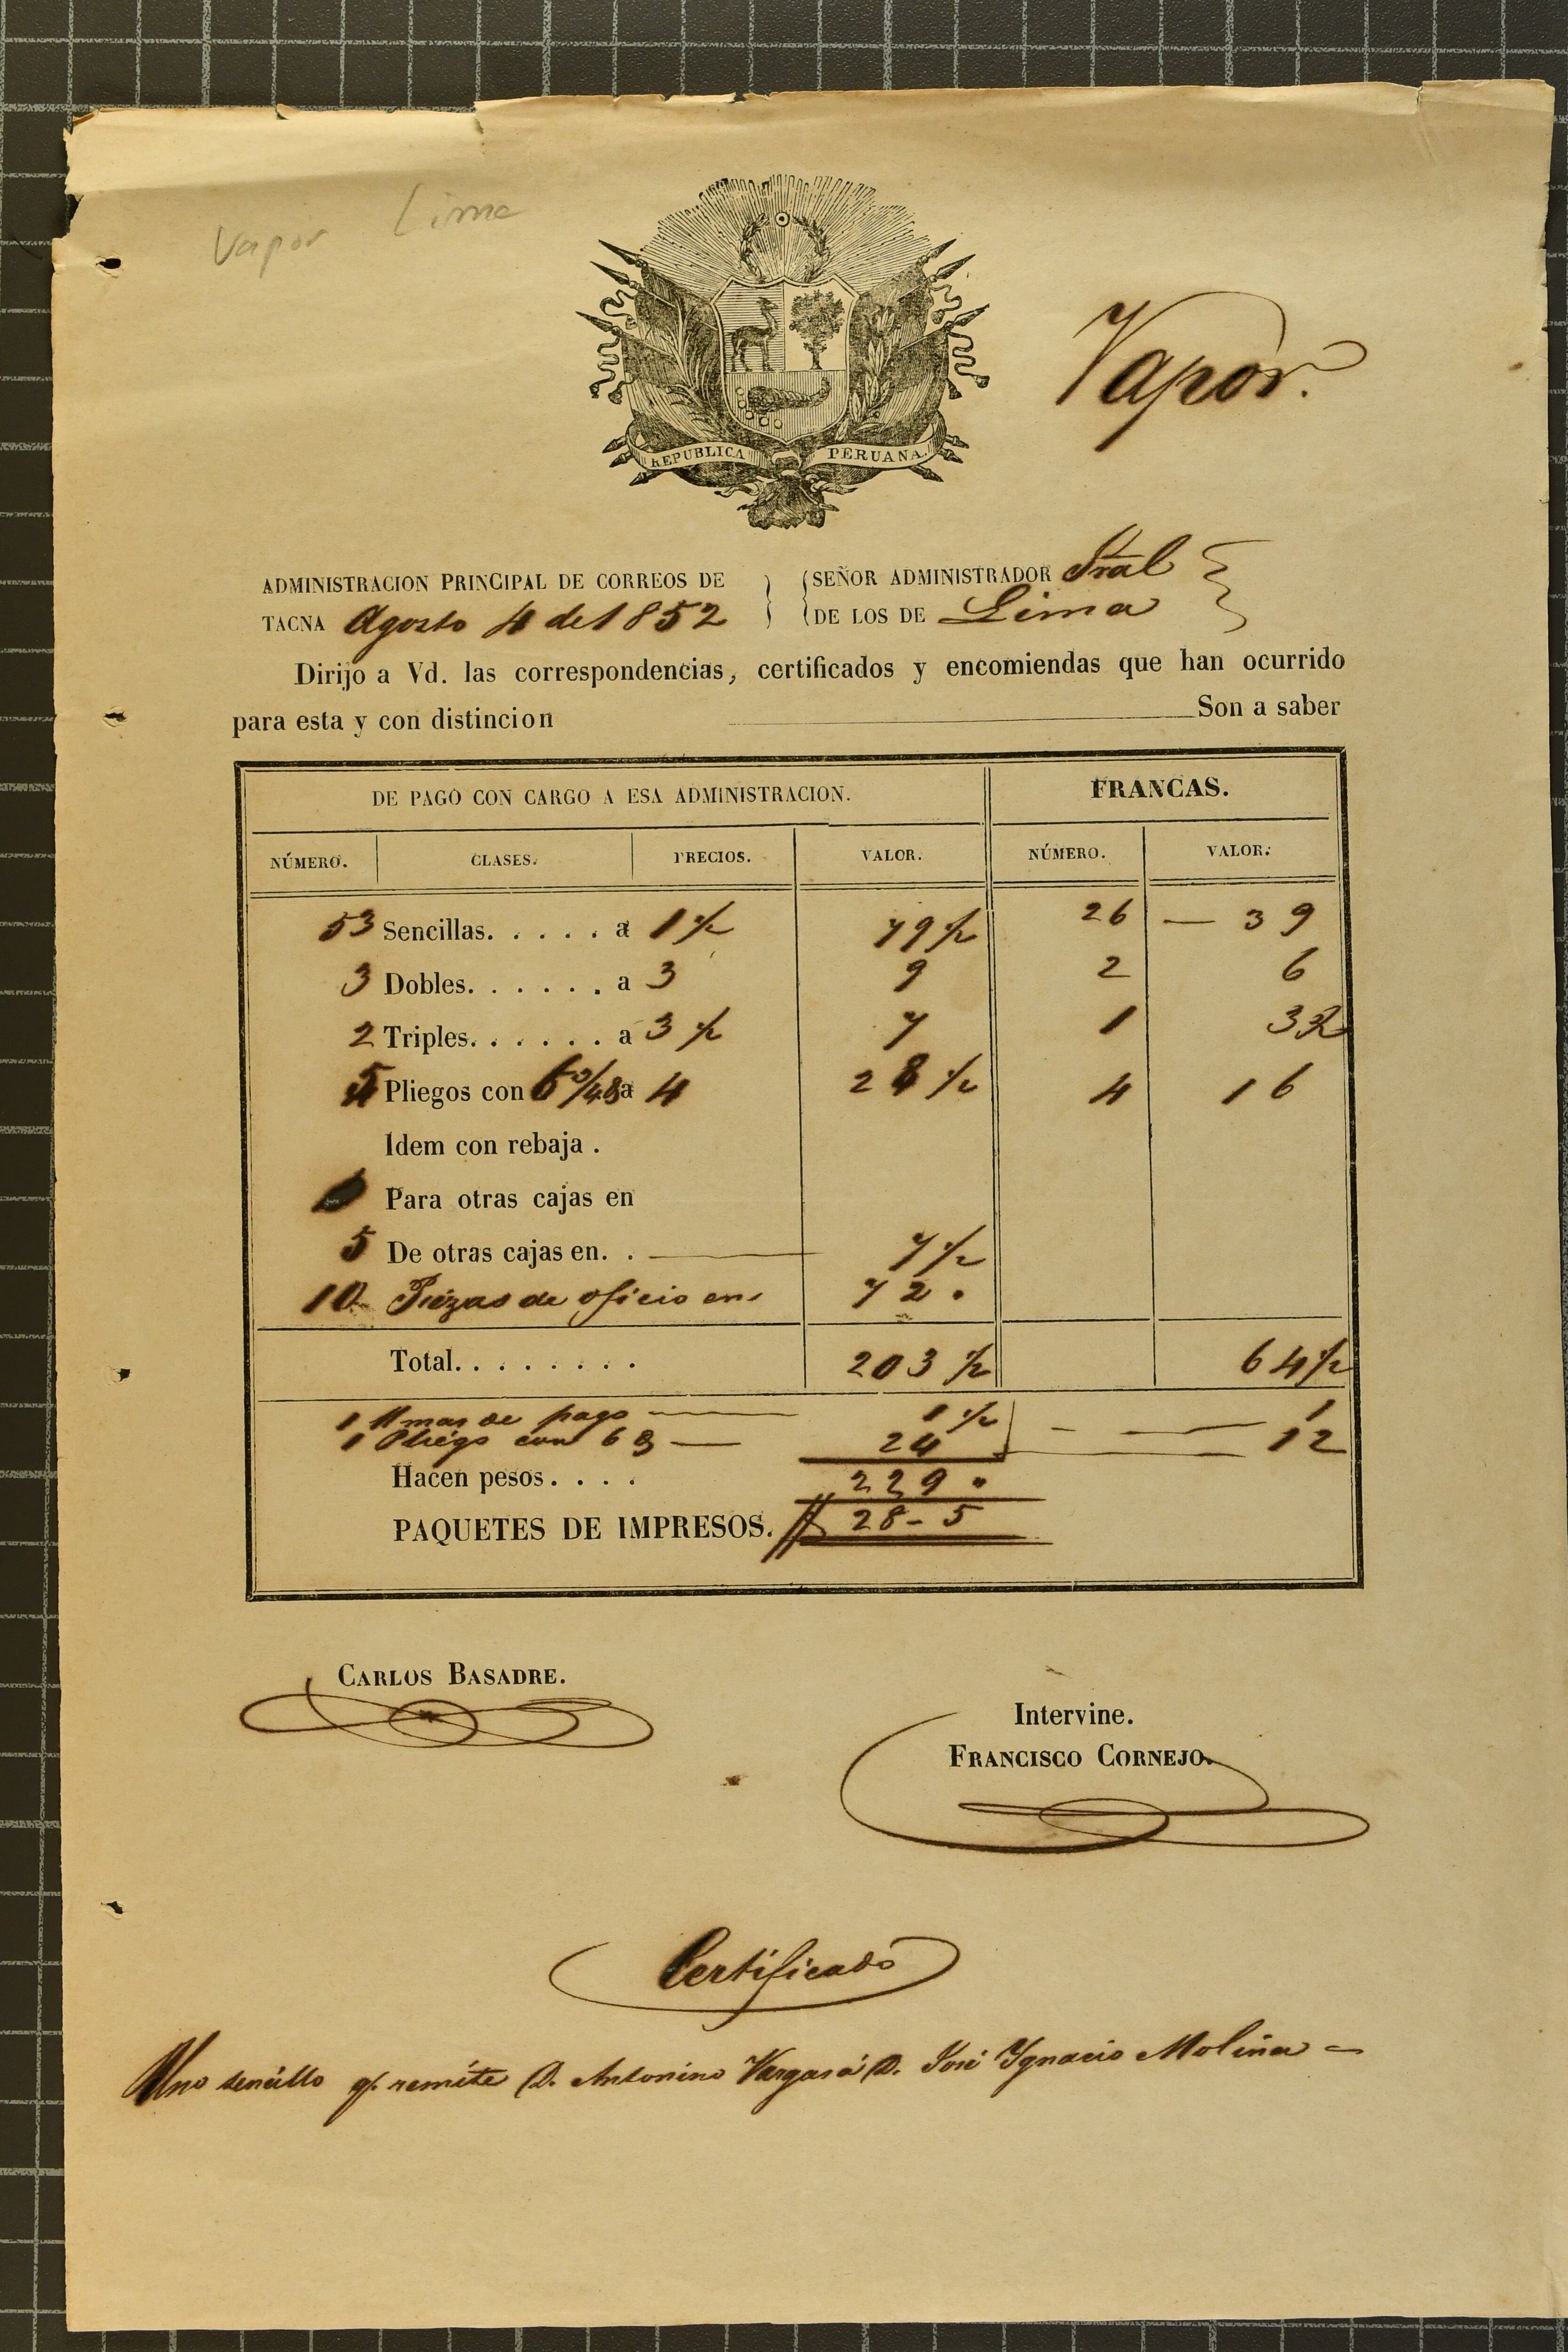 Vapor Lima
REPUBLICA PERUANA.
Vapor.
ADMINISTRACION PRINCIPAL DE CORREOS DE
TACNA Agosto 4 de 1852
SEÑOR ADMINISTRADOR Gral
DE LOS DE Lima
Dirijo a Vd. las correspondencias, certificados y encomiendas que han ocurrido
para esta y con distincion Son a saber
DE PAGO CON CARGO A ESA ADMINISTRACION. FRANCAS.
NÚMERO. CLASES. PRECIOS. VALOR. NÚMERO. VALOR.
53 Sencillas. . . . . a 1 1/2 79 1/2 26 — 39
3 Dobles. . . . . . a 3 9 2 6
2 Triples. . . . . . a 3 1/2 7 1 3 1/2
5 Pliegos con a 4 28 1/2 4 16
Idem con rebaja .
Para otras cajas en
5 De otras cajas en. . 7 1/2
10 Piezas de oficio en 72 .
Total. . . . . . . . 203 1/2 64 1/2
1 mas de pago — 1 1/2 — — 1
1 Pliego con 6 — 24 12
Hacen pesos. . . . 229 .
PAQUETES DE IMPRESOS. 28 - 5
CARLOS BASADRE.
Intervine.
FRANCISCO CORNEJO.
Certificado
Uno sencillo q. remite D. Antonino Vargas á D. José Ygnacio Molina —